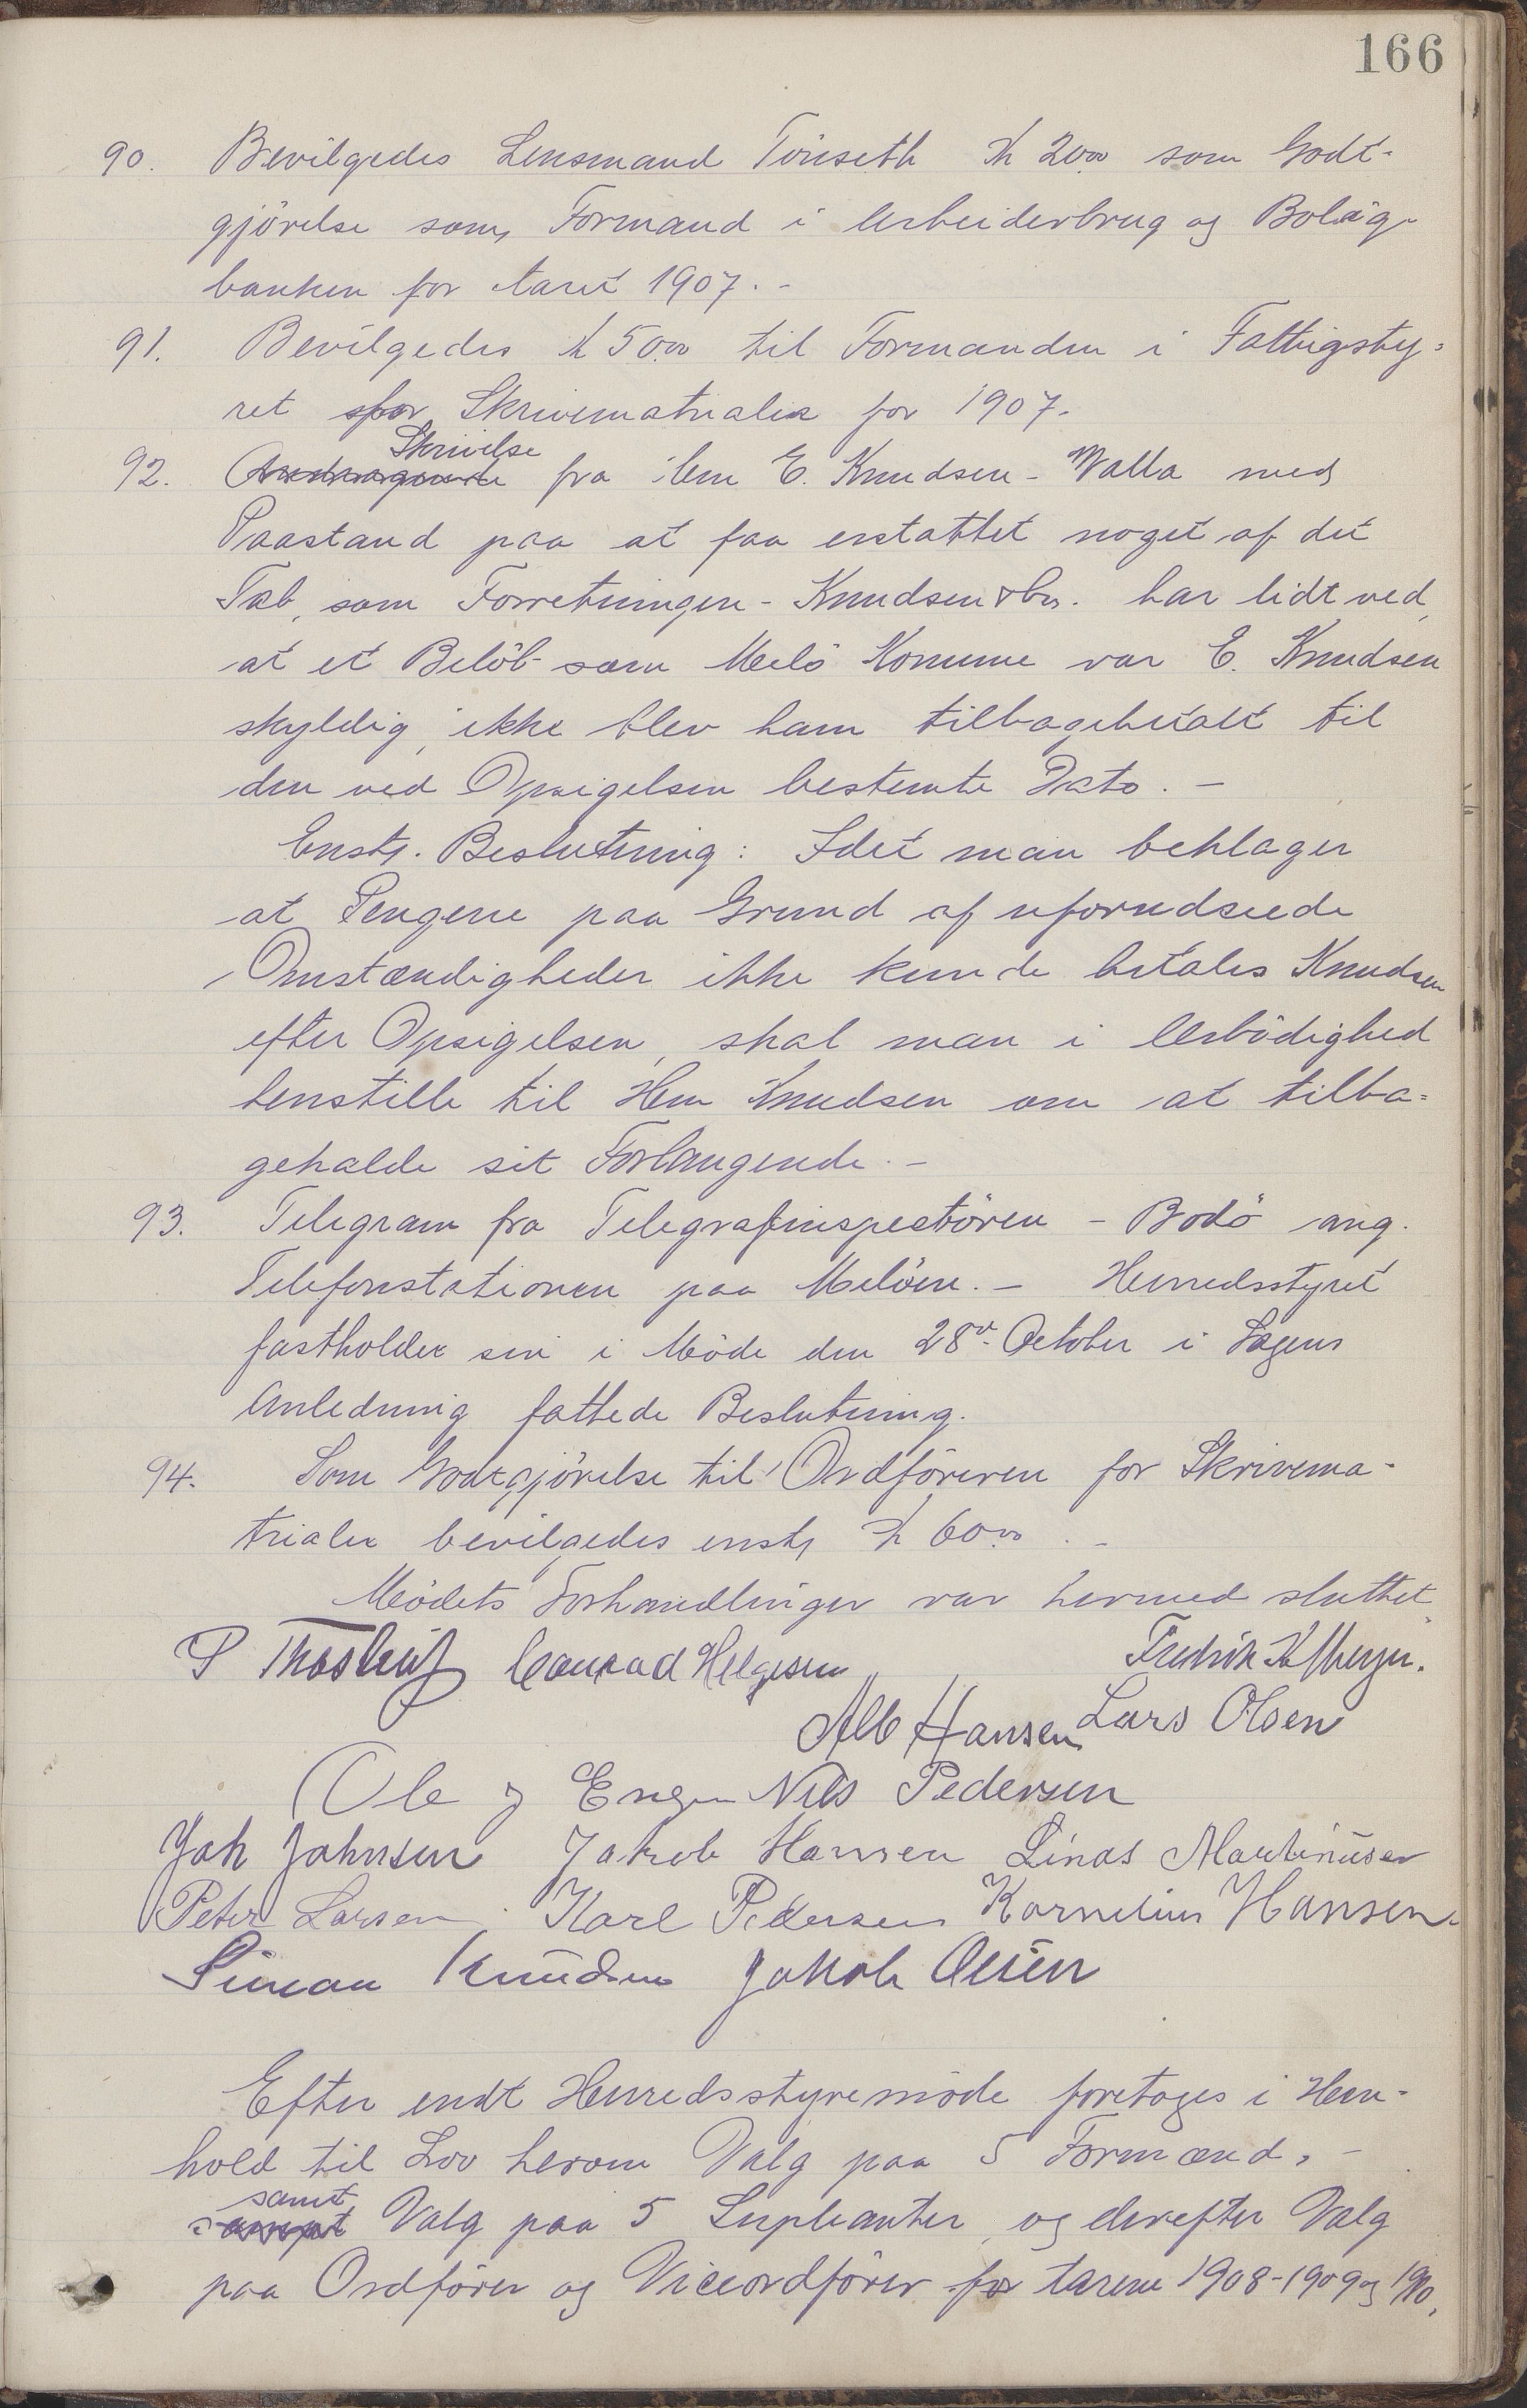 166
90. Bevilgedes Lensmand Tönseth Kr 20.00 som Godt-
gjörelse som Formand i Arbeiderbrug og Bolig-
banken for Aaret 1907. -
91. Bevilgedes Kr 50.00 til Formanden i Fattigsty=
ret for Skrivematrialer for 1907.
Skrivelse
92. Andragende fra Hrr E. Knudsen - Valla med
Paastand paa at faa erstattet noget af det
Tab, som Forretningen - Knudsen & Co. har lidt ved,
at et Belöb som Melö Komune var E. Knudsen
skyldig, ikke blev ham tilbagebetalt til
den ved Opsigelsen bestemte Dato. -
Enst. Beslutning: Idet man beklager
at Pengene paa Grund af uforudseede
Omstændigheder ikke kunde betales Knudsen
efter Opsigelsen, skal man i Ærbödighed
henstille til Herr Knudsen om at tilba=
geholde sit Forlangende. -
93. Telegram fra Telegrafinspectören - Bodö ang.
Telefonstationen paa Melöen. - Herredsstyret
fastholder sin i Möde den 28de October i Sagens
Anledning fattede Beslutning.
94. Som Godtgjörelse til Ordföreren for Skrivema-
trialer bevilgedes enst. Kr 60.00. -
Mödets Forhandlinger var hermed sluttet
P Conrad Helgesen Fredrik
Alb Hansen Lars Olsen
Ole J Engen Nils Pedersen
Joh Johnsen Jakob Hansen Linas Martinusen
Peter Larsen. Karl Pedersen Kornelius Hansen.
Simon Knudsen Jakob Olsen
Efter endt Herredsstyremöde foretoges i Hen-
hold til Lov herom Valg paa 5 Formænd, -
samt
samt Valg paa 5 Supleanter, og derefter Valg
paa Ordförer og Viceordförer for Aarene 1908-1909 og 1910.